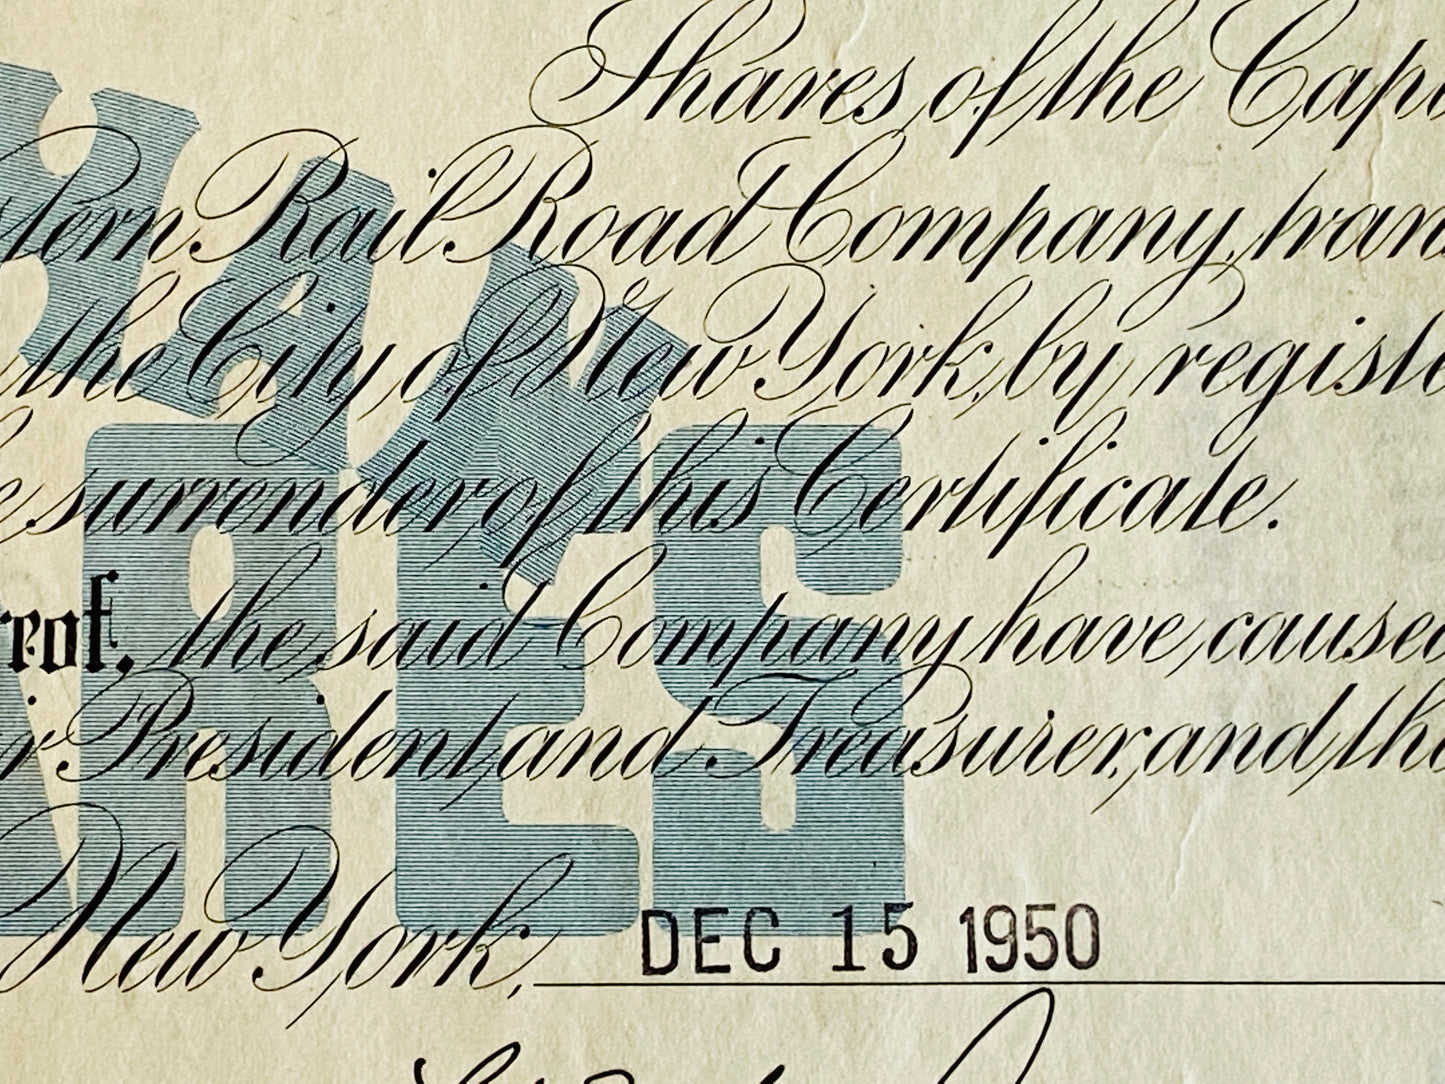 Shares of the Capi
tern Rail Road Company, trans
the City of New York, by registe
HAN
e surrender of this Certificate.
RES
reof, the said Company have caused
ir President and Treasurer, and the
New York, DEC 15 1950